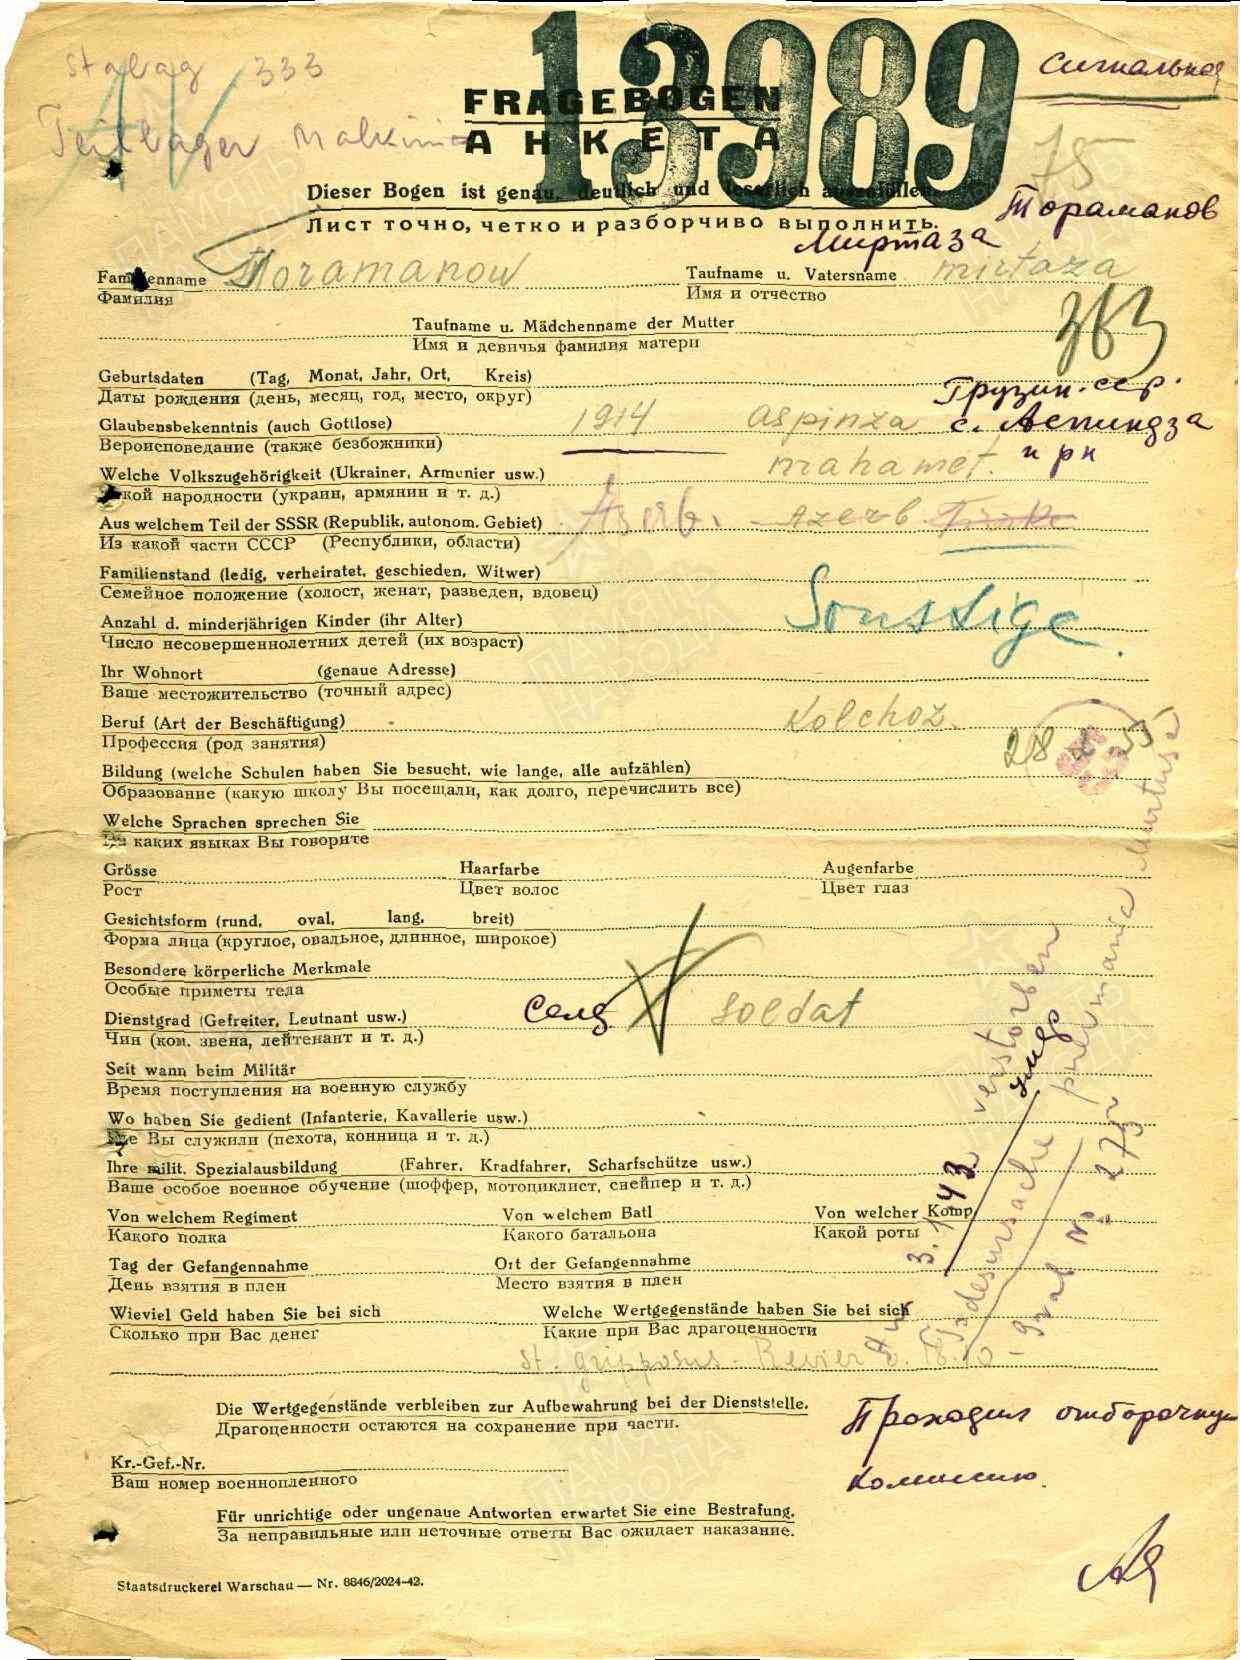 Stalag 333
13989
Сигнальная
FRAGEBOGEN
Teillager Malkinia
АНКЕТА
75
Dieser Bogen ist genau, deutlich und leserlich auszufüllen.
Тораманов
Лист точно, четко и разборчиво выполнить.
Миртаза
Familienname Toramanow Taufname u. Vatersname mirtaza
Фамилия Имя и отчество
363
Taufname u. Mädchenname der Mutter
Имя и девичья фамилия матери
Geburtsdaten (Tag, Monat, Jahr, Ort, Kreis)
Грузин. сср.
Даты рождения (день, месяц, год, место, округ)
Glaubensbekenntnis (auch Gottlose) 1914 Aspinza с. Аспиндза
Вероисповедание (также безбожники)
н рн
Welche Volkszugehörigkeit (Ukrainer, Armenier usw.) mahamet.
Какой народности (украин, армянин и т. д.)
Aus welchem Teil der SSSR (Republik, autonom. Gebiet) Aserb. Azerb.
Из какой части СССР (Республики, области)
Familienstand (ledig, verheiratet, geschieden, Witwer)
Семейное положение (холост, женат, разведен, вдовец)
Sonstige.
Anzahl d. minderjährigen Kinder (ihr Alter)
Число несовершеннолетних детей (их возраст)
Ihr Wohnort (genaue Adresse)
Ваше местожительство (точный адрес)
Beruf (Art der Beschäftigung) Kolchoz.
Профессия (род занятия)
Bildung (welche Schulen haben Sie besucht, wie lange, alle aufzählen)
Образование (какую школу Вы посещали, как долго, перечислить все)
Welche Sprachen sprechen Sie
На каких языках Вы говорите
Grösse Haarfarbe Augenfarbe
Рост Цвет волос Цвет глаз
Gesichtsform (rund, oval, lang, breit)
Форма лица (круглое, овальное, длинное, широкое)
Besondere körperliche Merkmale
Особые приметы тела
Dienstgrad (Gefreiter, Leutnant usw.) Солд Soldat
Чин (ком. звена, лейтенант и т. д.)
Seit wann beim Militär
Время поступления на военную службу
Wo haben Sie gedient (Infanterie, Kavallerie usw.)
Где Вы служили (пехота, конница и т. д.)
Ihre milit. Spezialausbildung (Fahrer, Kradfahrer, Scharfschütze usw.)
Ваше особое военное обучение (шоффер, мотоциклист, снейпер и т. д.)
Von welchem Regiment Von welchem Batl Von welcher Komp.
Какого полка Какого батальона Какой роты
Tag der Gefangennahme Ort der Gefangennahme
День взятия в плен Место взятия в плен
Wieviel Geld haben Sie bei sich Welche Wertgegenstände haben Sie bei sich
Сколько при Вас денег Какие при Вас драгоценности
Am 3.1.43 verstorben
умер
Todesursache
Grab № 273
St. gripposus - Revier
Die Wertgegenstände verbleiben zur Aufbewahrung bei der Dienststelle.
Драгоценности остаются на сохранение при части.
Проходил отборочную
комиссию.
Kr.-Gef.-Nr.
Ваш номер военнопленного
Für unrichtige oder ungenaue Antworten erwartet Sie eine Bestrafung.
За неправильные или неточные ответы Вас ожидает наказание.
Staatsdruckerei Warschau — Nr. 8846/2024-42.